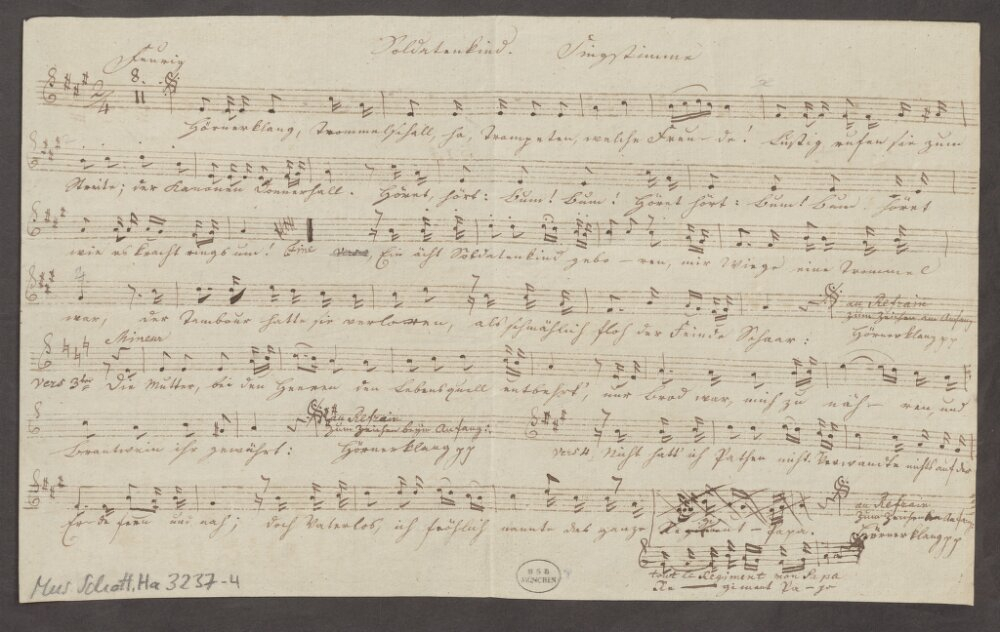 Soldatenkind. Singstimme
Feurig
8.
2/4
Hörnerklang, Trommelschall, ha, Trompeten, welche Freu- de! Lustig rufen sie zum
Streite; der Kanonen Donnerhall. Höret, hört: bum! bum! Höret hört: bum! bum höret
wie es kracht rings um! Fine Ein ächt Soldatenkind gebo - ren, mir Wiege eine Trommel
war, der Tambour hatte sie verloren, als schmählich floh der Feinde Schaar:
au Refrain
zum Zeichen am Anfang
Hörnerklang pp
Mineur
Vers 3 Die Mutter, bei den Heeren den Lebensquell entbehrt, nur Brod war, mich zu näh - ren, und
Brantwein ihr gewährt:
au Refrain
zum Zeichen beym Anfang:
Hörnerklang pp
Vers 4. Nicht hatt' ich Pathen nicht Verwandte nichts auf der
Er-de fern und nah; doch Vaterlos ich fröhlich nannte das ganze Regiment Papa.
au Refrain
zum Zeichen am Anfang
Hörnerklang pp
tout le Regiment mon Papa
Re giment Pa - pa
Mus Schott. Ha 3237-4
BSB
MÜNCHEN